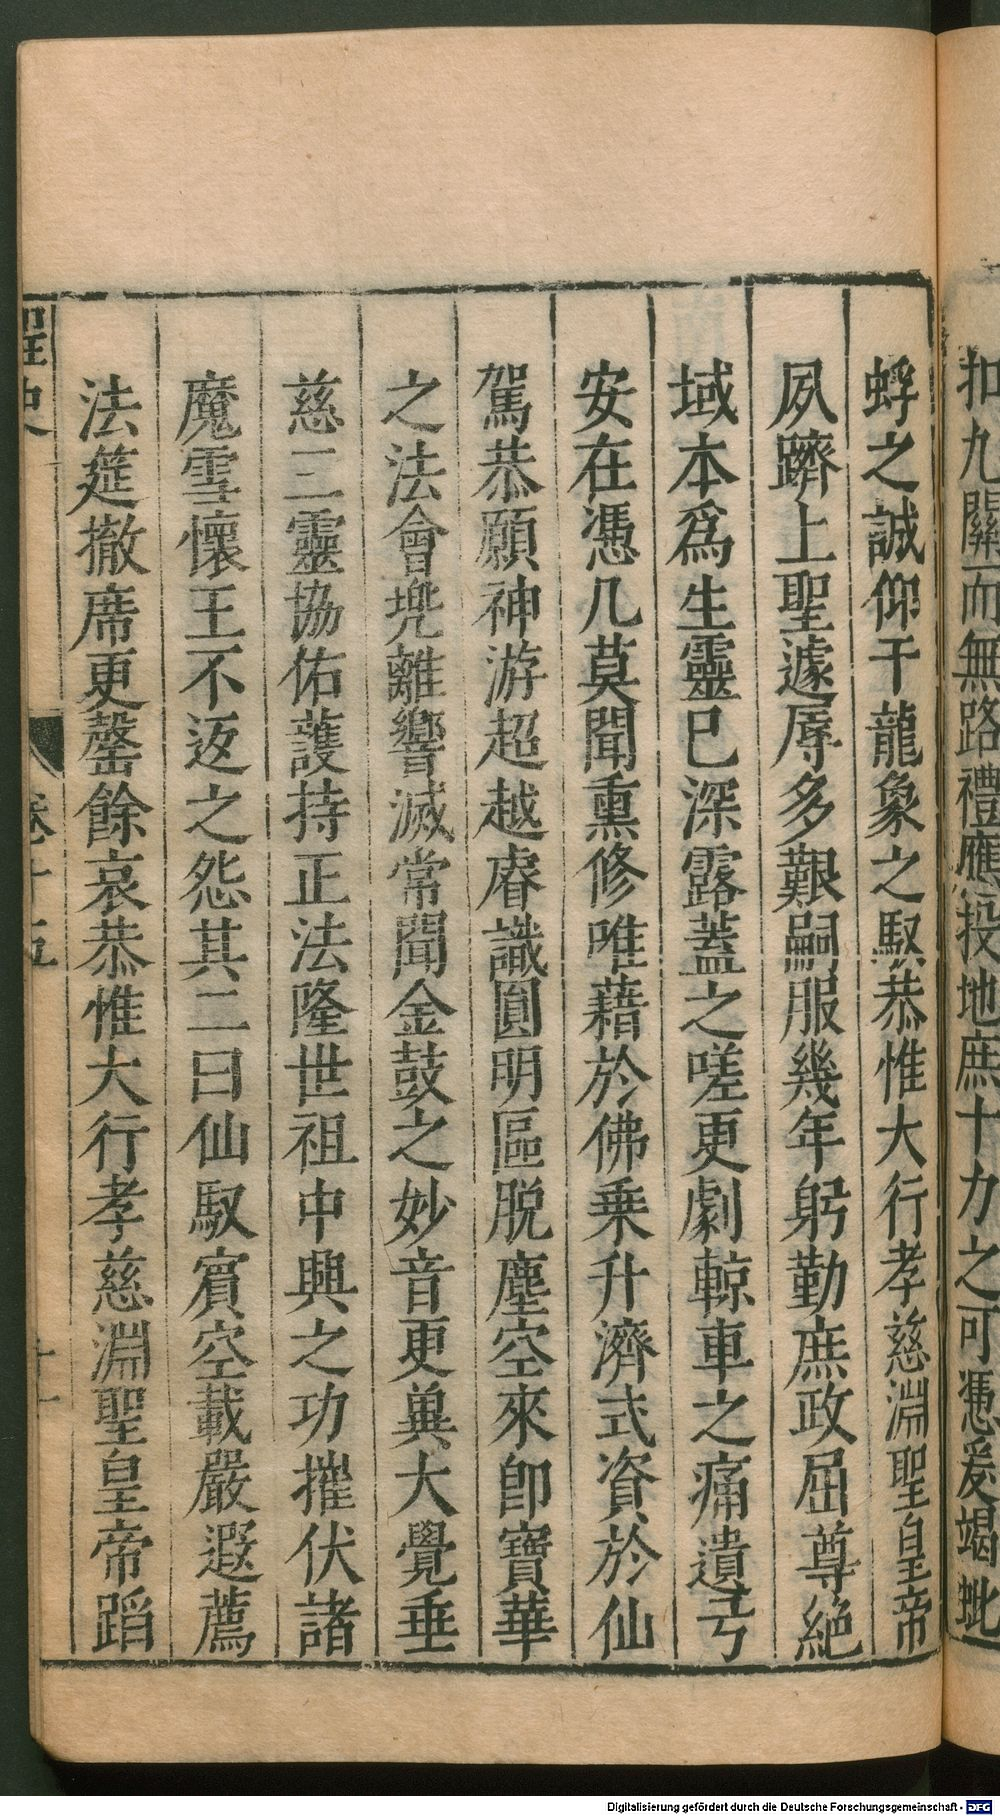 扣九關而無路禮應投地庶十力之可憑爰竭蚍
蜉之誠仰干龍象之馭恭惟大行孝慈淵聖皇帝
夙躋上聖遽辱多艱嗣服幾年躬勤庶政屈尊絕
域本爲生靈巳深露蓋之嗟更劇輬車之痛遺弓
安在憑几莫聞熏修唯藉於佛乗升濟式資於仙
駕恭願神游超越睿識圓明區脱塵空來卽寶華
之法會兠離響滅常聞金鼓之妙音更兾大覺垂
慈三靈協佑護持正法隆世祖中興之功摧伏諸
魔雪懷王不返之怨其二曰仙馭賔空載嚴遐薦
法筵撤席更罄餘哀恭惟大行孝慈淵聖皇帝蹈
卷十五
十一
Digitalisierung gefördert durch die Deutsche Forschungsgemeinschaft - DFG